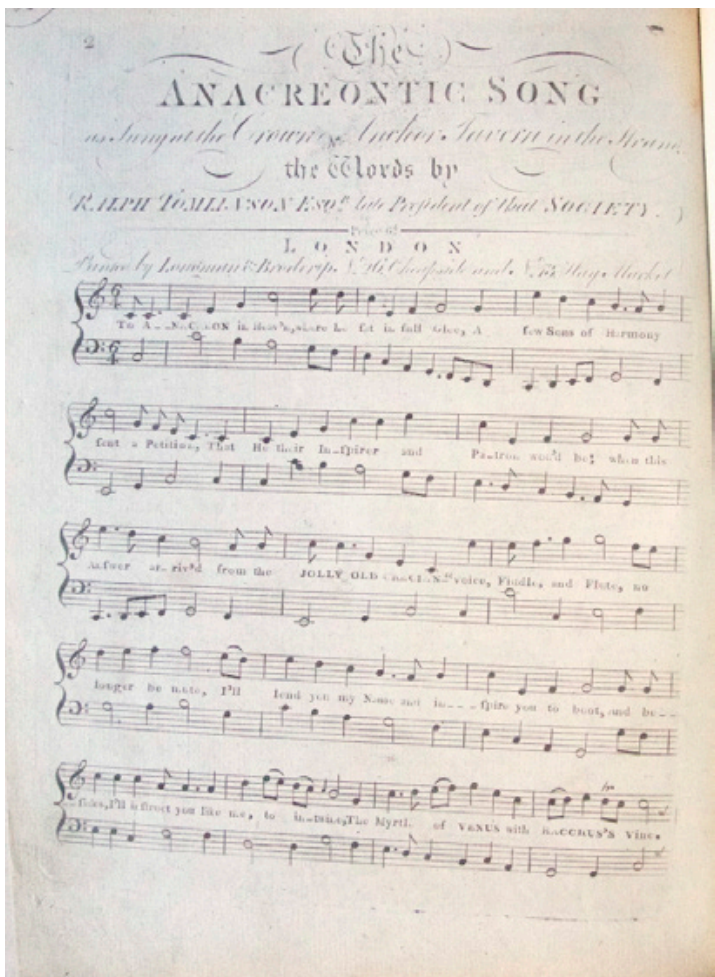 2
The
ANACREONTIC SONG
as Sung at the Crown & Anchor Tavern in the Strand,
the Words by
RALPH TOMLINSON ESQ.R late President of that SOCIETY.
Price 6d
LONDON
Printed by Longman & Broderip, No. 26, Cheapside and No. 13, Hay Market
To A--NACREON in Heav'n, where he sat in full Glee, A few Sons of Harmony
sent a Petition, That He their In--spirer and Pa--tron wou'd be; when this
Answer ar--riv'd from the JOLLY OLD GRECIAN "voice, Fiddle, and Flute, no
longer be mute, I'll lend you my Name and in---spire you to boot, and be--
sides, I'll instruct you like me, to in--twine, The Myrtle of VENUS with BACCHUS'S Vine.
tr